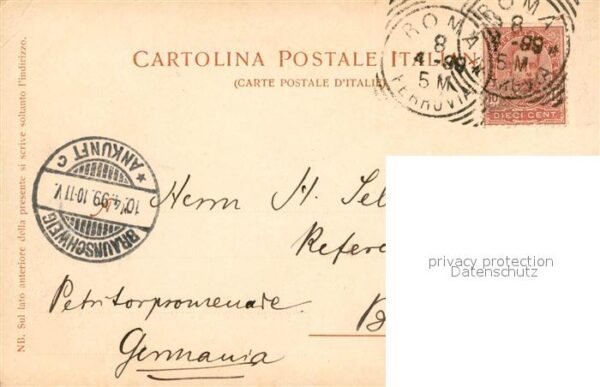 CARTOLINA POSTALE ITALIAN
(CARTE POSTALE D'ITALIE
ROMA
8
4-99
5 M
FERROVIA
ROMA
8
-99
5 M
10
DIECI CENT.
NB. Sul lato anteriore della presente si scrive soltanto l'indirizzo.
BRAUNSCHWEIG
10.4.99.10-11V.
* ANKUNFT C
Herrn H. Sel
Refere
Petritorpromenade.
B
Germania
privacy protection
Datenschutz